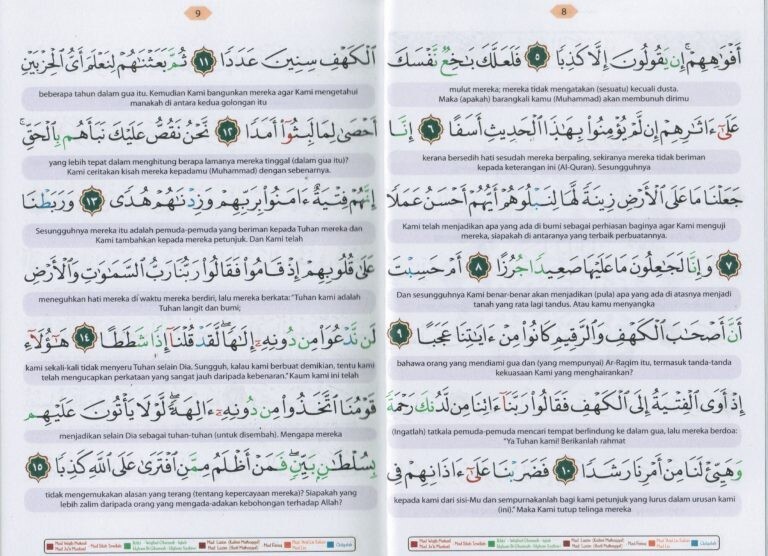 ٨
أَفْوَٰهِهِمْ ۚ إِن يَقُولُونَ إِلَّا كَذِبًا ٥ فَلَعَلَّكَ بَـٰخِعٌ نَّفْسَكَ
mulut mereka; mereka tidak mengatakan (sesuatu) kecuali dusta.
Maka (apakah) barangkali kamu (Muhammad) akan membunuh dirimu
عَلَىٰٓ ءَاثَـٰرِهِمْ إِن لَّمْ يُؤْمِنُوا۟ بِهَـٰذَا ٱلْحَدِيثِ أَسَفًا ٦ إِنَّا
kerana bersedih hati sesudah mereka berpaling, sekiranya mereka tidak beriman
kepada keterangan ini (Al-Quran). Sesungguhnya
جَعَلْنَا مَا عَلَى ٱلْأَرْضِ زِينَةً لَّهَا لِنَبْلُوَهُمْ أَيُّهُمْ أَحْسَنُ عَمَلًا
Kami telah menjadikan apa yang ada di bumi sebagai perhiasan baginya agar Kami menguji
mereka, siapakah di antaranya yang terbaik perbuatannya.
٧ وَإِنَّا لَجَـٰعِلُونَ مَا عَلَيْهَا صَعِيدًا جُرُزًا ٨ أَمْ حَسِبْتَ
Dan sesungguhnya Kami benar-benar akan menjadikan (pula) apa yang ada di atasnya menjadi
tanah yang rata lagi tandus. Atau kamu menyangka
أَنَّ أَصْحَـٰبَ ٱلْكَهْفِ وَٱلرَّقِيمِ كَانُوا۟ مِنْ ءَايَـٰتِنَا عَجَبًا ٩
bahawa orang yang mendiami gua dan (yang mempunyai) Ar-Raqim itu, termasuk tanda-tanda
kekuasaan Kami yang menghairankan?
إِذْ أَوَى ٱلْفِتْيَةُ إِلَى ٱلْكَهْفِ فَقَالُوا۟ رَبَّنَآ ءَاتِنَا مِن لَّدُنكَ رَحْمَةً
(Ingatlah) tatkala pemuda-pemuda mencari tempat berlindung ke dalam gua, lalu mereka berdoa:
"Ya Tuhan kami! Berikanlah rahmat
وَهَيِّئْ لَنَا مِنْ أَمْرِنَا رَشَدًا ١٠ فَضَرَبْنَا عَلَىٰٓ ءَاذَانِهِمْ فِى
kepada kami dari sisi-Mu dan sempurnakanlah bagi kami petunjuk yang lurus dalam urusan kami
(ini)." Maka Kami tutup telinga mereka
٩
ٱلْكَهْفِ سِنِينَ عَدَدًا ١١ ثُمَّ بَعَثْنَـٰهُمْ لِنَعْلَمَ أَىُّ ٱلْحِزْبَيْنِ
beberapa tahun dalam gua itu. Kemudian Kami bangunkan mereka agar Kami mengetahui
manakah di antara kedua golongan itu
أَحْصَىٰ لِمَا لَبِثُوٓا۟ أَمَدًا ١٢ نَّحْنُ نَقُصُّ عَلَيْكَ نَبَأَهُم بِٱلْحَقِّ ۚ
yang lebih tepat dalam menghitung berapa lamanya mereka tinggal (dalam gua itu)?
Kami ceritakan kisah mereka kepadamu (Muhammad) dengan sebenarnya.
إِنَّهُمْ فِتْيَةٌ ءَامَنُوا۟ بِرَبِّهِمْ وَزِدْنَـٰهُمْ هُدًى ١٣ وَرَبَطْنَا
Sesungguhnya mereka itu adalah pemuda-pemuda yang beriman kepada Tuhan mereka dan
Kami tambahkan kepada mereka petunjuk. Dan Kami telah
عَلَىٰ قُلُوبِهِمْ إِذْ قَامُوا۟ فَقَالُوا۟ رَبُّنَا رَبُّ ٱلسَّمَـٰوَٰتِ وَٱلْأَرْضِ
meneguhkan hati mereka di waktu mereka berdiri, lalu mereka berkata: "Tuhan kami adalah
Tuhan langit dan bumi;
لَن نَّدْعُوَا۟ مِن دُونِهِۦٓ إِلَـٰهًا ۖ لَّقَدْ قُلْنَآ إِذًا شَطَطًا ١٤ هَـٰٓؤُلَآءِ
kami sekali-kali tidak menyeru Tuhan selain Dia, Sungguh, kalau kami berbuat demikian, tentu kami
telah mengucapkan perkataan yang sangat jauh daripada kebenaran." Kaum kami ini telah
قَوْمُنَا ٱتَّخَذُوا۟ مِن دُونِهِۦٓ ءَالِهَةً ۖ لَّوْلَا يَأْتُونَ عَلَيْهِم
menjadikan selain Dia sebagai tuhan-tuhan (untuk disembah). Mengapa mereka
بِسُلْطَـٰنٍۭ بَيِّنٍ ۖ فَمَنْ أَظْلَمُ مِمَّنِ ٱفْتَرَىٰ عَلَى ٱللَّهِ كَذِبًا ١٥
tidak mengemukakan alasan yang terang (tentang kepercayaan mereka)? Siapakah yang
lebih zalim daripada orang yang mengada-adakan kebohongan terhadap Allah?